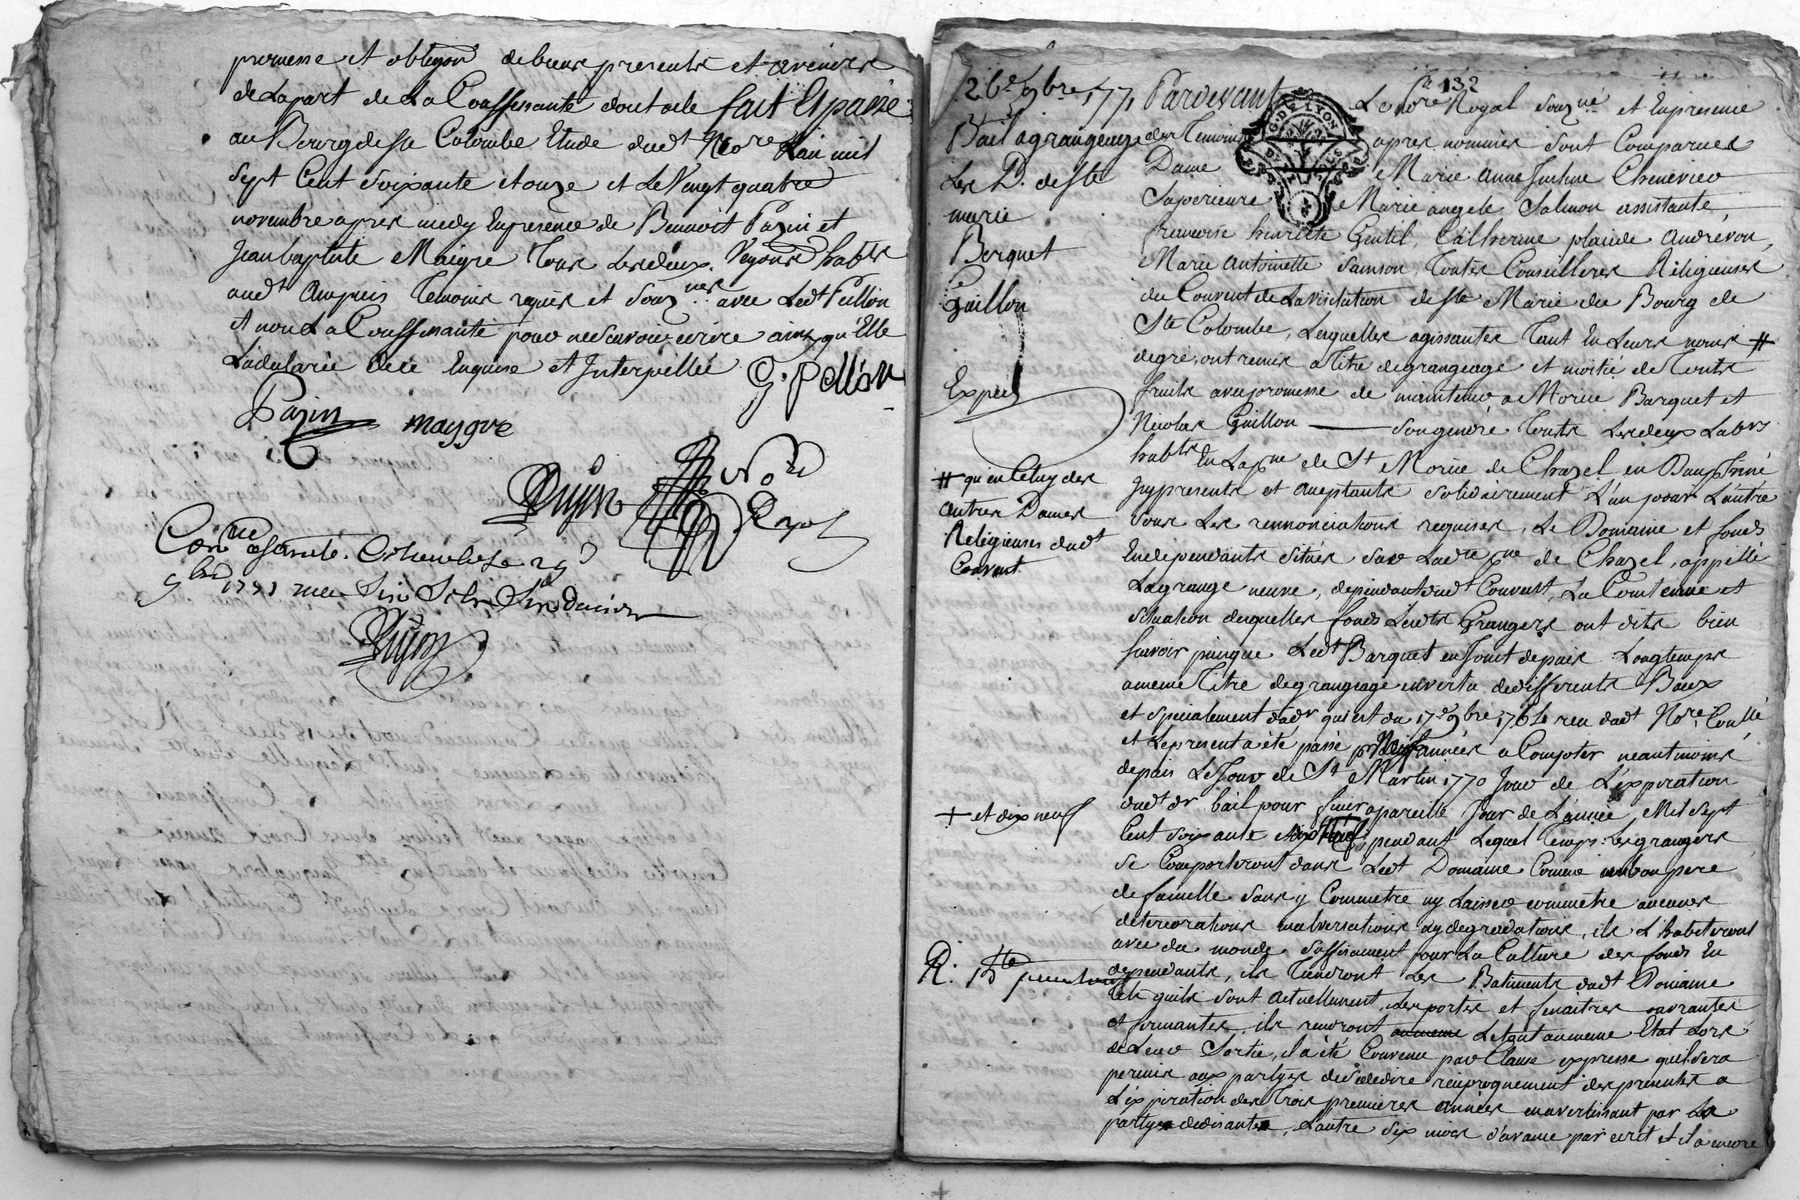 promesse et obligon de biens presents et avenirs
de la part de La Confessante dont acte fait Et passé
au Bourg de Ste Colombe Etude dudt Nore L'an mil
sept Cent soixante et onze et Le vingt quatre
novembre apres midy En presence de Benoit Pazin et
Jean baptiste Maigre Tous Les deux Vignerons habts
audt Ampuis Temoins requis et souznés avec Ledt Pellion
et non La Confessante pour ne scavoir ecrire ainsy qu'Elle
L'a declaré de ce Enquise et Interpellée
G. pellion
Pazin maygre
Duyon
Conlle a Ste Colombe Le 29
9bre 1771
Duyon
n 132
26e 9bre 1771
Bail a grangeage
Les D. de Ste
marie
Berquet
Et
Guillon
Exped
# qu'en Celuy des
autres Dames
Religieuses dudt
Couvent
+ et dix neuf
R.
G. DE LYON
Pardevant Le Nore Royal souzné et En presence
des Temoins apres nommés sont Comparues
Dame Marie Anne Justine Chenevier
Superieure Marie angele Salmon assistante,
francoise henriette Gentil, Catherine placide Andrevon,
Marie Antoinette Samson, Toutes Conseilleres Religieuses
du Couvent de La visitation de Ste Marie du Bourg de
Ste Colombe, Lesquelles agissantes Tant En Leurs noms #
degré, ont remis a Titre de grangeage et moitié de Touts
fruits avec promesse de maintenir a Barquet et
Nicolas Guillon ——— son gendre Touts Les deux Labrs
habts En La psse de St de Chazel en Dauphiné
Icy presents et acceptants solidairement L'un pour L'autre
sous Les rennonciations requises, Le Domaine et fonds
En dependants situés sur Ladte psse de Chazel, appellé
La grange neuve, dependant dudt Couvent, La Contenue et
situation desquelles fonds Lesdts Grangers ont dits bien
scavoir puisque Ledt Barquet en Jouit depuis Longtemps
a meme Titre de grangeage en vertu de differents Baux
et specialement du dr qui est du 17e 9bre 176 recu dudt Nore
et Le present a été passé pr Neuf années a Compter neantmoins
depuis Le Jour de St Martin 1770 Jour de L'expiration
dudt dr bail pour finir a pareille Jour de L'année Mil sept
Cent soixante + pendant Lequel Temps Les grangers
se Comporteront dans Ledt Domaine Comme un bon pere
de famille sans y Commettre ny Laisser commettre aucunes
deteriorations malversations ny degradations, ils L'habiteront
avec du monde suffisament pour La Culture des fonds En
dependants, ils Tiendront Les Batiments dudt Domaine
tels quils sont actuellement, Les portes et fenaitres ouvrantes
et fermantes, ils rendront Le tout au meme Etat Lors
de Leur Sortie, il a été Convenu par Clause expresse quil sera
permis aux partyes de se dedire reciproquement des presentes a
L'expiration des Trois premieres années en avertissant par La
partye dedisante, L'autre six mois d'avance par ecrit et il a encore